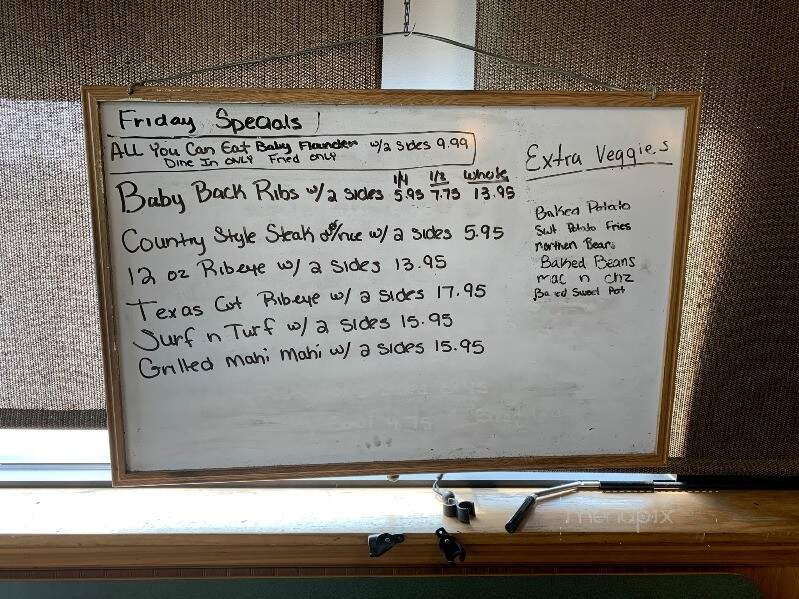 Friday Specials
ALL You Can Eat Baby Flounder w/2 sides 9.99
Dine In ONLY Fried ONLY
1/4 1/2 whole
Baby Back Ribs w/2 sides 5.95 7.75 13.95
Country Style Steak w/ 2 sides 5.95
12 oz Ribeye w/ 2 sides 13.95
Texas Cut Ribeye w/ 2 sides 17.95
Surf n Turf w/ 2 sides 15.95
Grilled Mahi Mahi w/ 2 sides 15.95
Extra Veggies
Baked Potato
Swt Potato Fries
northen Beans
Baked Beans
mac n chz
Baked Sweet Pot
menupix